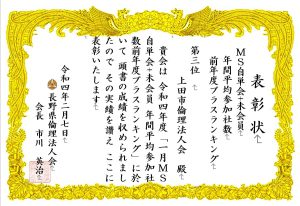 表彰状
MS自単会+未会員
年間平均参加社数
前年度プラスランキング
第三位
上田市倫理法人会 殿
貴会は 令和四年度「一月MS
自単会+未会員 年間平均参加社
数前年度プラスランキング」に於
いて 頭書の成績を収められまし
たので その実績を讃え ここに
表彰いたします
令和四年二月七日
長野県倫理法人会
会長 市川 英治